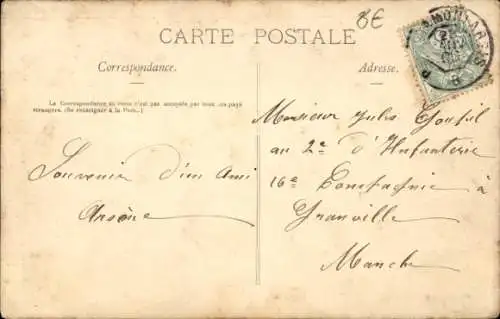 8€
CARTE POSTALE
Correspondance.
Adresse.
La Correspondance au verso n'est pas acceptée par tous les pays
étrangers. (Se renseigner à la Poste.)
Souvenir d'un Ami
Arsène
Monsieur Jules
au 2e d'Infanterie
16e Compagnie à
Granville
Manche